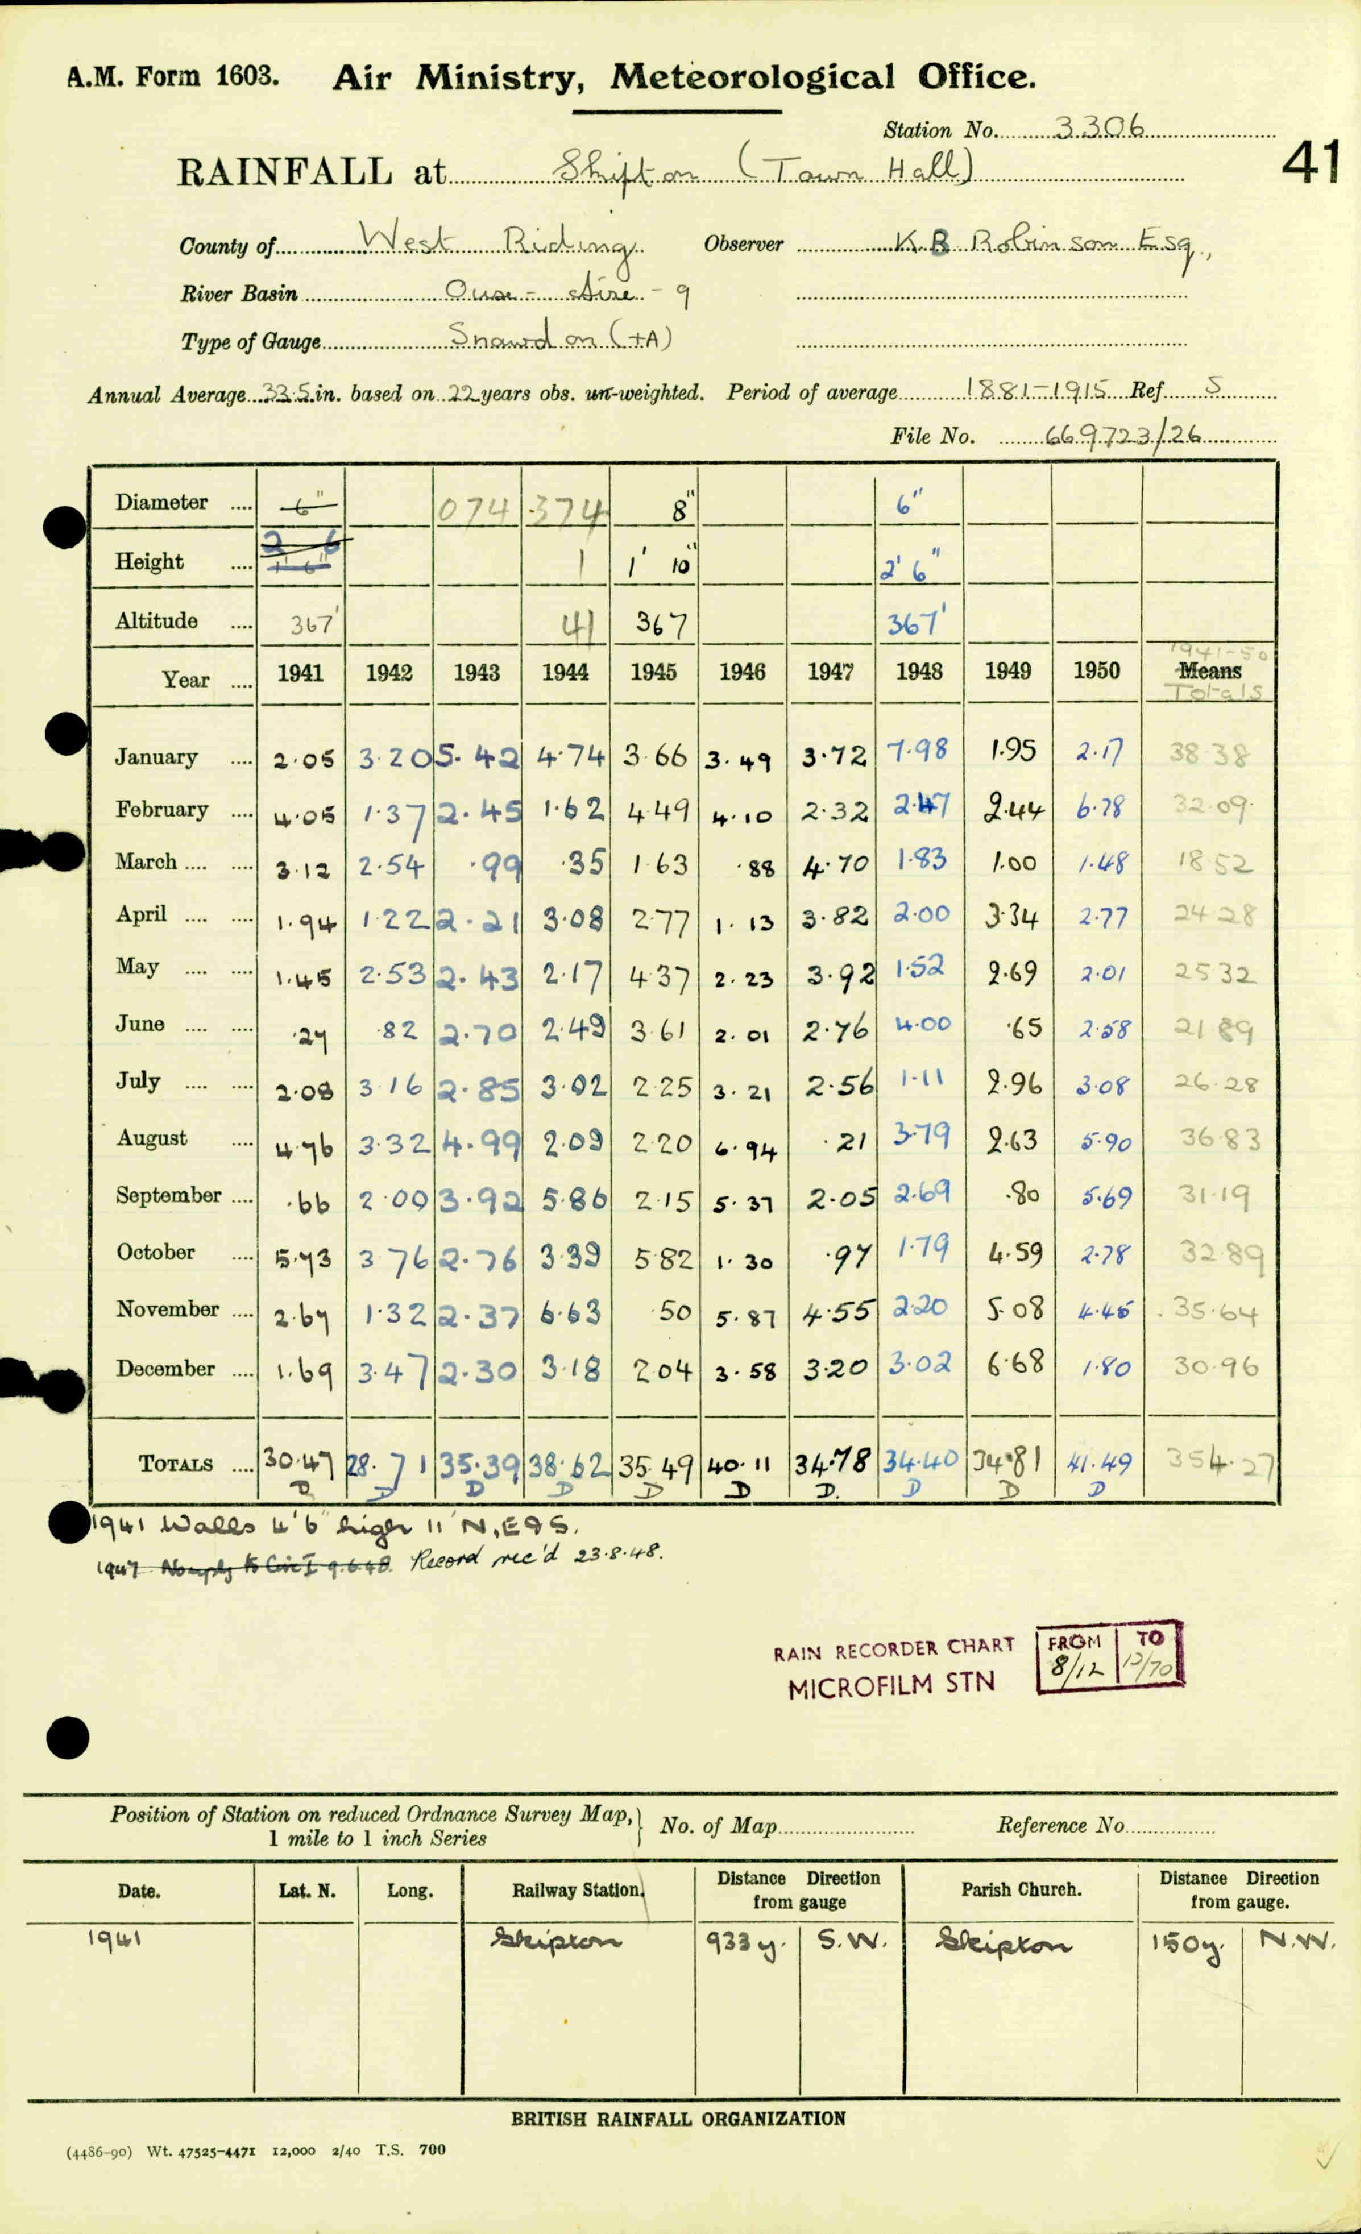 A.M. Form 1603. Air Ministry, Meteorological Office.
Station No. 3306
41
RAINFALL at Skipton (Town Hall)
County of West Riding Observer K B Robinson Esq.,
River Basin Ouse - Aire - 9
Type of Gauge Snowdon (+A)
Annual Average 33.5 in. based on 22 years obs. un-weighted. Period of average 1881-1915 Ref. S
File No. 669723/26
Diameter .... 6" 074 374 8" 6"
Height .... 2 6 1' 6" 1 1' 10" 2' 6"
Altitude .... 367' 41 367 367'
1941-50
Year .... 1941 1942 1943 1944 1945 1946 1947 1948 1949 1950 Means
Totals
January .... 2.05 3.20 5.42 4.74 3.66 3.49 3.72 7.98 1.95 2.17 38.38
February .... 4.05 1.37 2.45 1.62 4.49 4.10 2.32 2.47 2.44 6.78 32.09
March .... .... 3.12 2.54 .99 .35 1.63 .88 4.70 1.83 1.00 1.48 18.52
April .... .... 1.94 1.22 2.21 3.08 2.77 1.13 3.82 2.00 3.34 2.77 24.28
May .... .... 1.45 2.53 2.43 2.17 4.37 2.23 3.92 1.52 2.69 2.01 25.32
June .... .... .27 .82 2.70 2.49 3.61 2.01 2.76 4.00 .65 2.58 21.89
July .... .... 2.08 3.16 2.85 3.02 2.25 3.21 2.56 1.11 2.96 3.08 26.28
August .... 4.76 3.32 4.99 2.09 2.20 6.94 .21 3.79 2.63 5.90 36.83
September .... .66 2.00 3.92 5.86 2.15 5.37 2.05 2.69 .80 5.69 31.19
October .... 5.73 3.76 2.76 3.39 5.82 1.30 .97 1.79 4.59 2.78 32.89
November .... 2.67 1.32 2.37 6.63 .50 5.87 4.55 2.20 5.08 4.45 35.64
December .... 1.69 3.47 2.30 3.18 2.04 3.58 3.20 3.02 6.68 1.80 30.96
TOTALS .... 30.47 28.71 35.39 38.62 35.49 40.11 34.78 34.40 34.81 41.49 354.27
D D D D D D D. D D D
1941 Walls 4'6" high 11' N, E & S.
1947 No reply to Circ I 9.6.48. Record rec'd 23.8.48.
RAIN RECORDER CHART FROM TO
MICROFILM STN 8/12 12/70
Position of Station on reduced Ordnance Survey Map,} No. of Map Reference No.
1 mile to 1 inch Series
Date. Lat. N. Long. Railway Station. Distance from gauge Direction Parish Church. Distance from gauge. Direction
1941 Skipton 933 y. S.W. Skipton 150 y. N.W.
BRITISH RAINFALL ORGANIZATION
(4486-90) Wt. 47525-4471 12,000 2/40 T.S. 700